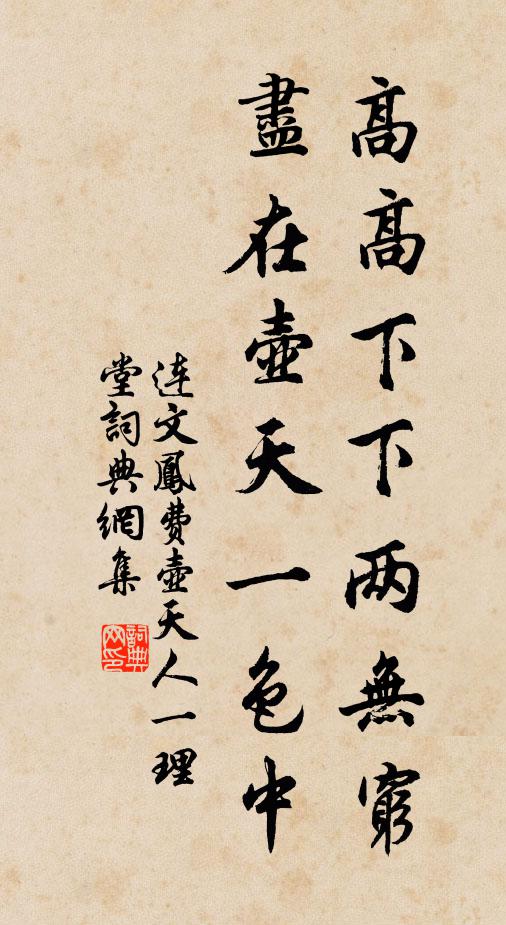 高高下下两無窮
盡在壺天一色中
连文鳳费壺天人一理
堂詞典網集
詞典网印